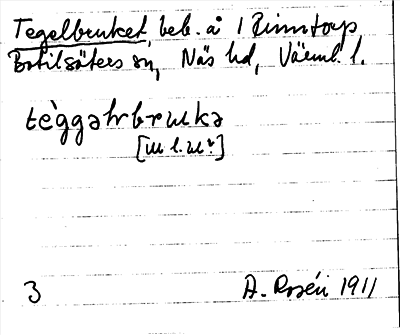 Tegelbruket, beb. å 1 Finntorp,
Botilsäters sn, Näs hd, Värml. l.
tèggəhrbrukə
[u l. u?]
3 A. Rosén 1911